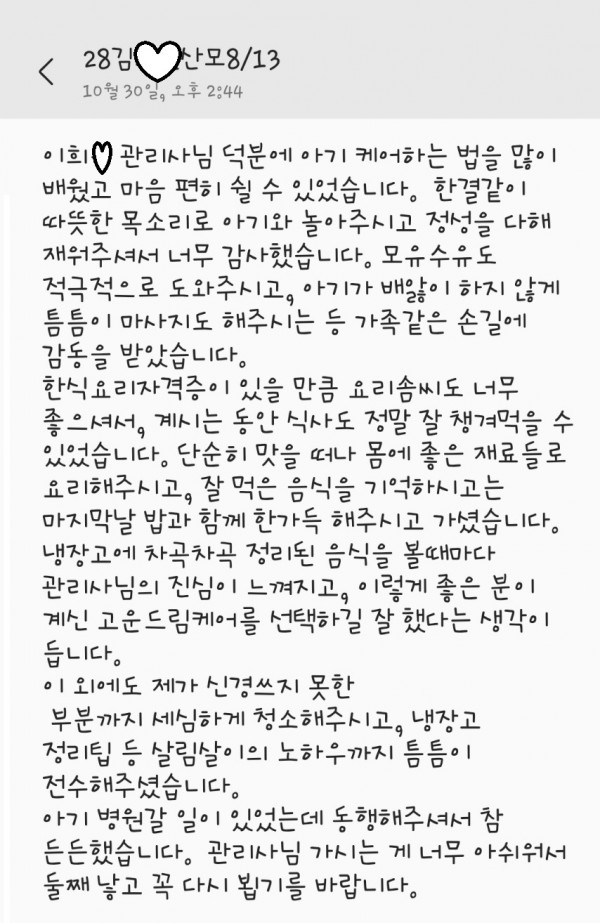 28김 산모8/13
10월 30일, 오후 2:44
이희 관리사님 덕분에 아기 케어하는 법을 많이
배웠고 마음 편히 쉴 수 있었습니다. 한결같이
따뜻한 목소리로 아기와 놀아주시고 정성을 다해
재워주셔서 너무 감사했습니다. 모유수유도
적극적으로 도와주시고, 아기가 배앓이 하지 않게
틈틈이 마사지도 해주시는 등 가족같은 손길에
감동을 받았습니다.
한식요리자격증이 있을 만큼 요리솜씨도 너무
좋으셔서, 계시는 동안 식사도 정말 잘 챙겨먹을 수
있었습니다. 단순히 맛을 떠나 몸에 좋은 재료들로
요리해주시고, 잘 먹은 음식을 기억하시고는
마지막날 밥과 함께 한가득 해주시고 가셨습니다.
냉장고에 차곡차곡 정리된 음식을 볼때마다
관리사님의 진심이 느껴지고, 이렇게 좋은 분이
계신 고운드림케어를 선택하길 잘 했다는 생각이
듭니다.
이 외에도 제가 신경쓰지 못한
부분까지 세심하게 청소해주시고, 냉장고
정리팁 등 살림살이의 노하우까지 틈틈이
전수해주셨습니다.
아기 병원갈 일이 있었는데 동행해주셔서 참
든든했습니다. 관리사님 가시는 게 너무 아쉬워서
둘째 낳고 꼭 다시 뵙기를 바랍니다.